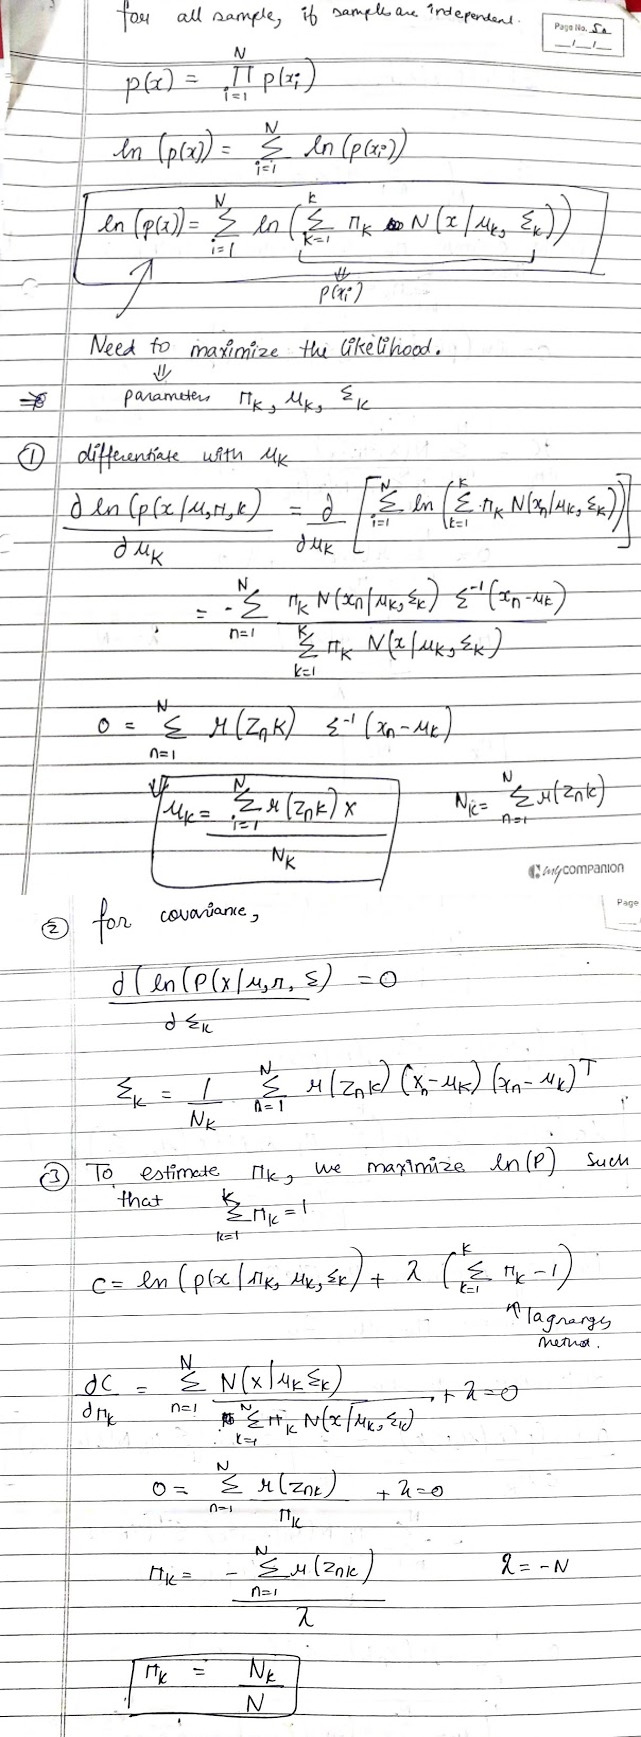 for all sample, if samples are independent.
Page No. 50
p(x) = ∏_{i=1}^{N} p(x_i)
ln (p(x)) = Σ_{i=1}^{N} ln (p(x_i))
ln (p(x)) = Σ_{i=1}^{N} ln (Σ_{k=1}^{k} π_k N(x/μ_k, Σ_k))
⇓
p(x_i)
Need to maximize the likelihood.
⇓
parameters π_k, μ_k, Σ_k
① differentiate with μ_k
∂ ln (p(x/μ,π,k) / ∂μ_k = ∂/∂μ_k [Σ_{i=1}^{N} ln (Σ_{k=1}^{K} π_k N(x_n/μ_k, Σ_k))]
= - Σ_{n=1}^{N} π_k N(x_n/μ_k, Σ_k) Σ^{-1} (x_n - μ_k) / Σ_{k=1}^{K} π_k N(x/μ_k, Σ_k)
0 = Σ_{n=1}^{N} r(z_n k) Σ^{-1} (x_n - μ_k)
⇓ μ_k = Σ_{i=1}^{N} r(z_n k) x / N_k
N_k = Σ_{n=1}^{N} r(z_n k)
mycompanion
Page
② for covariance,
∂(ln(P(x/μ,π, Σ) / ∂Σ_k = 0
Σ_k = 1/N_k Σ_{n=1}^{N} r(z_n k) (x_n - μ_k) (x_n - μ_k)^T
③ To estimate π_k, we maximize ln(P) such
that Σ_{k=1}^{k} π_k = 1
C = ln (p(x/π_k, μ_k, Σ_k) + λ (Σ_{k=1}^{k} π_k - 1)
↑ lagranges
method.
dC/dπ_k = Σ_{n=1}^{N} N(x/μ_k Σ_k) / Σ_{k=1}^{N} π_k N(x/μ_k, Σ_k) + λ = 0
0 = Σ_{n=1}^{N} r(z_nk) / π_k + λ = 0
π_k = - Σ_{n=1}^{N} r(z_nk) / λ
λ = -N
π_k = N_k / N